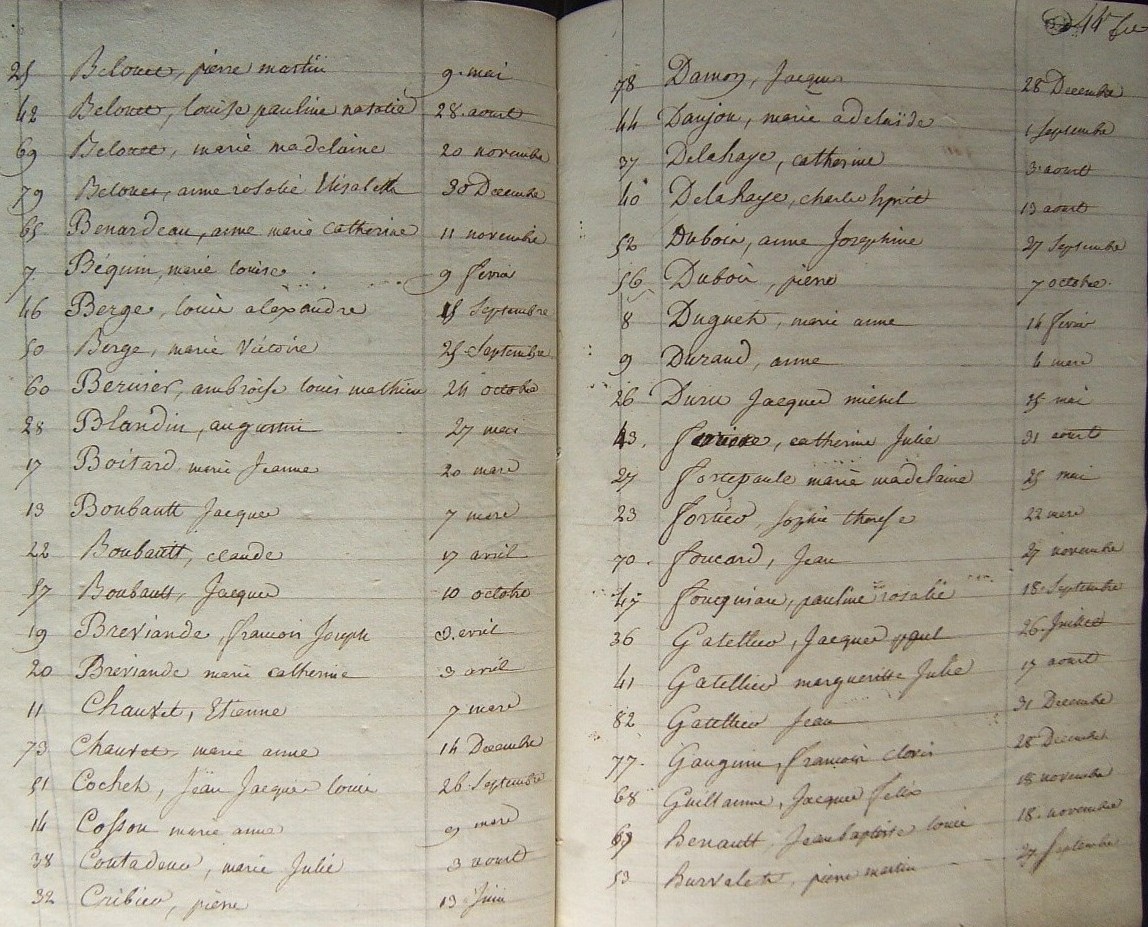 25 Belouet, pierre martin 9 mai
42 Belouet, louise pauline natalie 28 aoust
69 Belouet, marie madelaine 20 novembre
79 Belouet, anne rosalie Elisabeth 30 Decembre
65 Benardeau, anne marie catherine 11 novembre
7 Béquin, marie louise 9 fevrier
46 Berge, louis alexandre 15 Septembre
50 Berge, marie Victoire 25 Septembre
60 Bernier, ambroise louis mathieu 24 octobre
28 Blandin, augustin 27 mai
17 Boitard marie Jeanne 20 mars
13 Boubault Jacques 7 mars
22 Boubault, claude 17 avril
57 Boubault, Jacques 10 octobre
19 Breviande, francois Joseph 3 avril
20 Breviande marie catherine 3 avril
11 Chauvet, Etienne 7 mars
73 Chauvet, marie anne 14 Decembre
51 Cochet, Jean Jacques louis 26 Septembre
14 Cosson marie anne 9 mars
38 marie Julie 3 aoust
32 pierre 13 Juin
44
78 Damon, Jacques 28 Decembre
44 Danjou, marie adelaïde 1 Septembre
37 Delahaye, catherine 3 aoust
40 Delahaye, charles 13 aoust
52 Dubois, anne Josephine 27 Septembre
56 Dubois, pierre 7 octobre
8 Duguet, marie anne 14 fevrier
9 Durand, anne 6 mars
26 Duru Jacques michel 15 mai
43 catherine Julie 31 aoust
27 fortepaule marie madelaine 25 mai
23 fortier, sophie therese 22 mars
70 foucard, Jean 27 novembre
47 pauline rosalie 18 Septembre
36 Gatellier, Jacques paul 26 Juillet
41 Gatellier marguerite Julie 17 aoust
82 Gatellier Jean 31 Decembre
77 Gauguin, francois clovis 28 Decembre
68 Guillaume, Jacques felix 18 novembre
69 henault, Jean baptiste louis 18 novembre
53 hurvalet, pierre martin 27 septembre